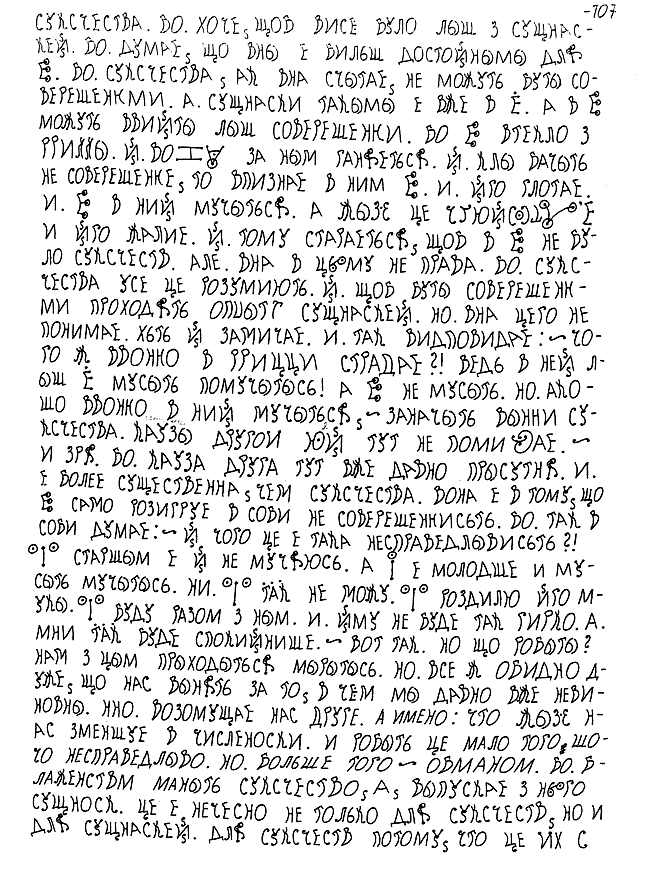 -107
СУКСЧЕСТВА. БО. ХОЧЕ, ЩОБ ВИСЕ БУЛО ЛЫШ З СУЩНАС-
КЕЙ. БО. ДУМАЕ, ЩО ВНО Е БИЛЬШ ДОСТОЙНОМО ДЛЯ
БО. СУКСЧЕСТВА, АК ВНА СЧОТАЕ, НЕ МОЖУТЬ БУТО СО-
ВЕРЕШЕНКМИ. А. СУЩНАСКИ ТАКОМО Е ВЖЕ В Е. А В
МОЖУТЬ ВВИЙТО ЛЫШ СОВЕРЕШЕНКИ. БО ВТЕКЛО З
Й. БО ЗА НОМ ГАНЯЕТЬСЯ. Й. КЛО БАЧОТЬ
НЕ СОВЕРЕШЕНКЕ, ТО ВПИЗНАЕ В НИМ Е. И. ЙГО ГЛОТАЕ.
И. В НИЙ МУЧОТЬСЯ. А ЦЕ
И ЙГО ЖАЛИЕ. Й. ТОМУ СТАРАЕТЬСЯ, ЩОБ В НЕ БУ-
ЛО СУКСЧЕСТВ. АЛЕ. ВНА В ЦЬОМУ НЕ ПРАВА. БО. СУКС-
ЧЕСТВА УСЕ ЦЕ РОЗУМИЮТЬ. Й. ЩОБ БУТО СОВЕРЕШЕНК-
МИ ПРОХОДЯТЬ ОПЫТ СУЩНАСКЕЙ. НО. ВНА ЦЕГО НЕ
ПОНИМАЕ. ХОТЬ Й ЗАМИЧАЕ. И. ТАК ВИДПОВИДАЕ: ~ ЧО-
ГО Ж ВВОНКО В ГРИЦЦИ СТРАДАЕ?! ВЕДЬ В НЕЙ Л-
ЫШ Е МУСОТЬ ПОМУЧОТОСЬ! А НЕ МУСОТЬ. НО. АКО-
ЩО ВВОНКО В НИЙ МУЧОТЬСЯ, ~ ЗАНАЧОТЬ ВОННИ СУ-
КСЧЕСТВА. КАУЗО ДРУГОИ ТУТ НЕ ПОМИЧАЕ. ~
И ЗРЯ. БО. КАУЗА ДРУГА ТУТ ВЖЕ ДАВНО ПРЫСУТНЯ. И.
Е БОЛЕЕ СУЩЕСТВЕННА, ЧЕМ СУКСЧЕСТВА. ВОНА Е В ТОМУ, ЩО
САМО РОЗИГРУЕ В СОБИ НЕ СОВЕРЕШЕНКИСТЬ. БО. ТАК В
СОБИ ДУМАЕ: ~ Й ЧОГО ЦЕ Е ТАКА НЕСПРАВЕДЛОВИСТЬ?!
СТАРШОМ Е Й НЕ МУЧЯЮСЬ. А Е МОЛОДШЕ И МУ-
СОТЬ МУЧОТОСЬ. НИ. ТАК НЕ МОЖУ. РОЗДИЛЮ ЙГО М-
УКО. БУДУ РАЗОМ З НОМ. И. ЙМУ НЕ БУДЕ ТАК ГИРКО. А.
МНИ ТАК БУДЕ СПОКИЙНИШЕ. ~ ВОТ ТАК. НО ЩО РОБОТО?
НАМ З ЦОМ ПРОХОДОТЬСЯ МОРОТОСЬ. НО. ВСЕ Ж ОБИДНО Д-
УЖЕ, ЩО НАС ВОНЯТЬ ЗА ТО, В ЧЕМ МО ДАВНО ВЖЕ НЕВИ-
НОВНО. ННО. ВОЗОМУЩАЕ НАС ДРУГЕ. А ИМЕНО: ЧТО Н-
АС ЗМЕНШУЕ В ЧИСЛЕНОСКИ. И РОБОТЬ ЦЕ МАЛО ТОГО, ЩО-
ЧО НЕСПРАВЕДЛОВО. НО. БОЛЬШЕ ТОГО ~ ОБМАНОМ. БО. Б-
ЛАЖЕНСТВМ МАНОТЬ СУКСЧЕСТВО, А, ВОПУСКАЕ З НЬОГО
СУЩНОСК. ЦЕ Е НЕЧЕСНО НЕ ТОЛЬКО ДЛЯ СУКСЧЕСТВ, НО И
ДЛЯ СУЩНАСКЕЙ. ДЛЯ СУКСЧЕСТВ ПОТОМУ, ЧТО ЦЕ ИХ С